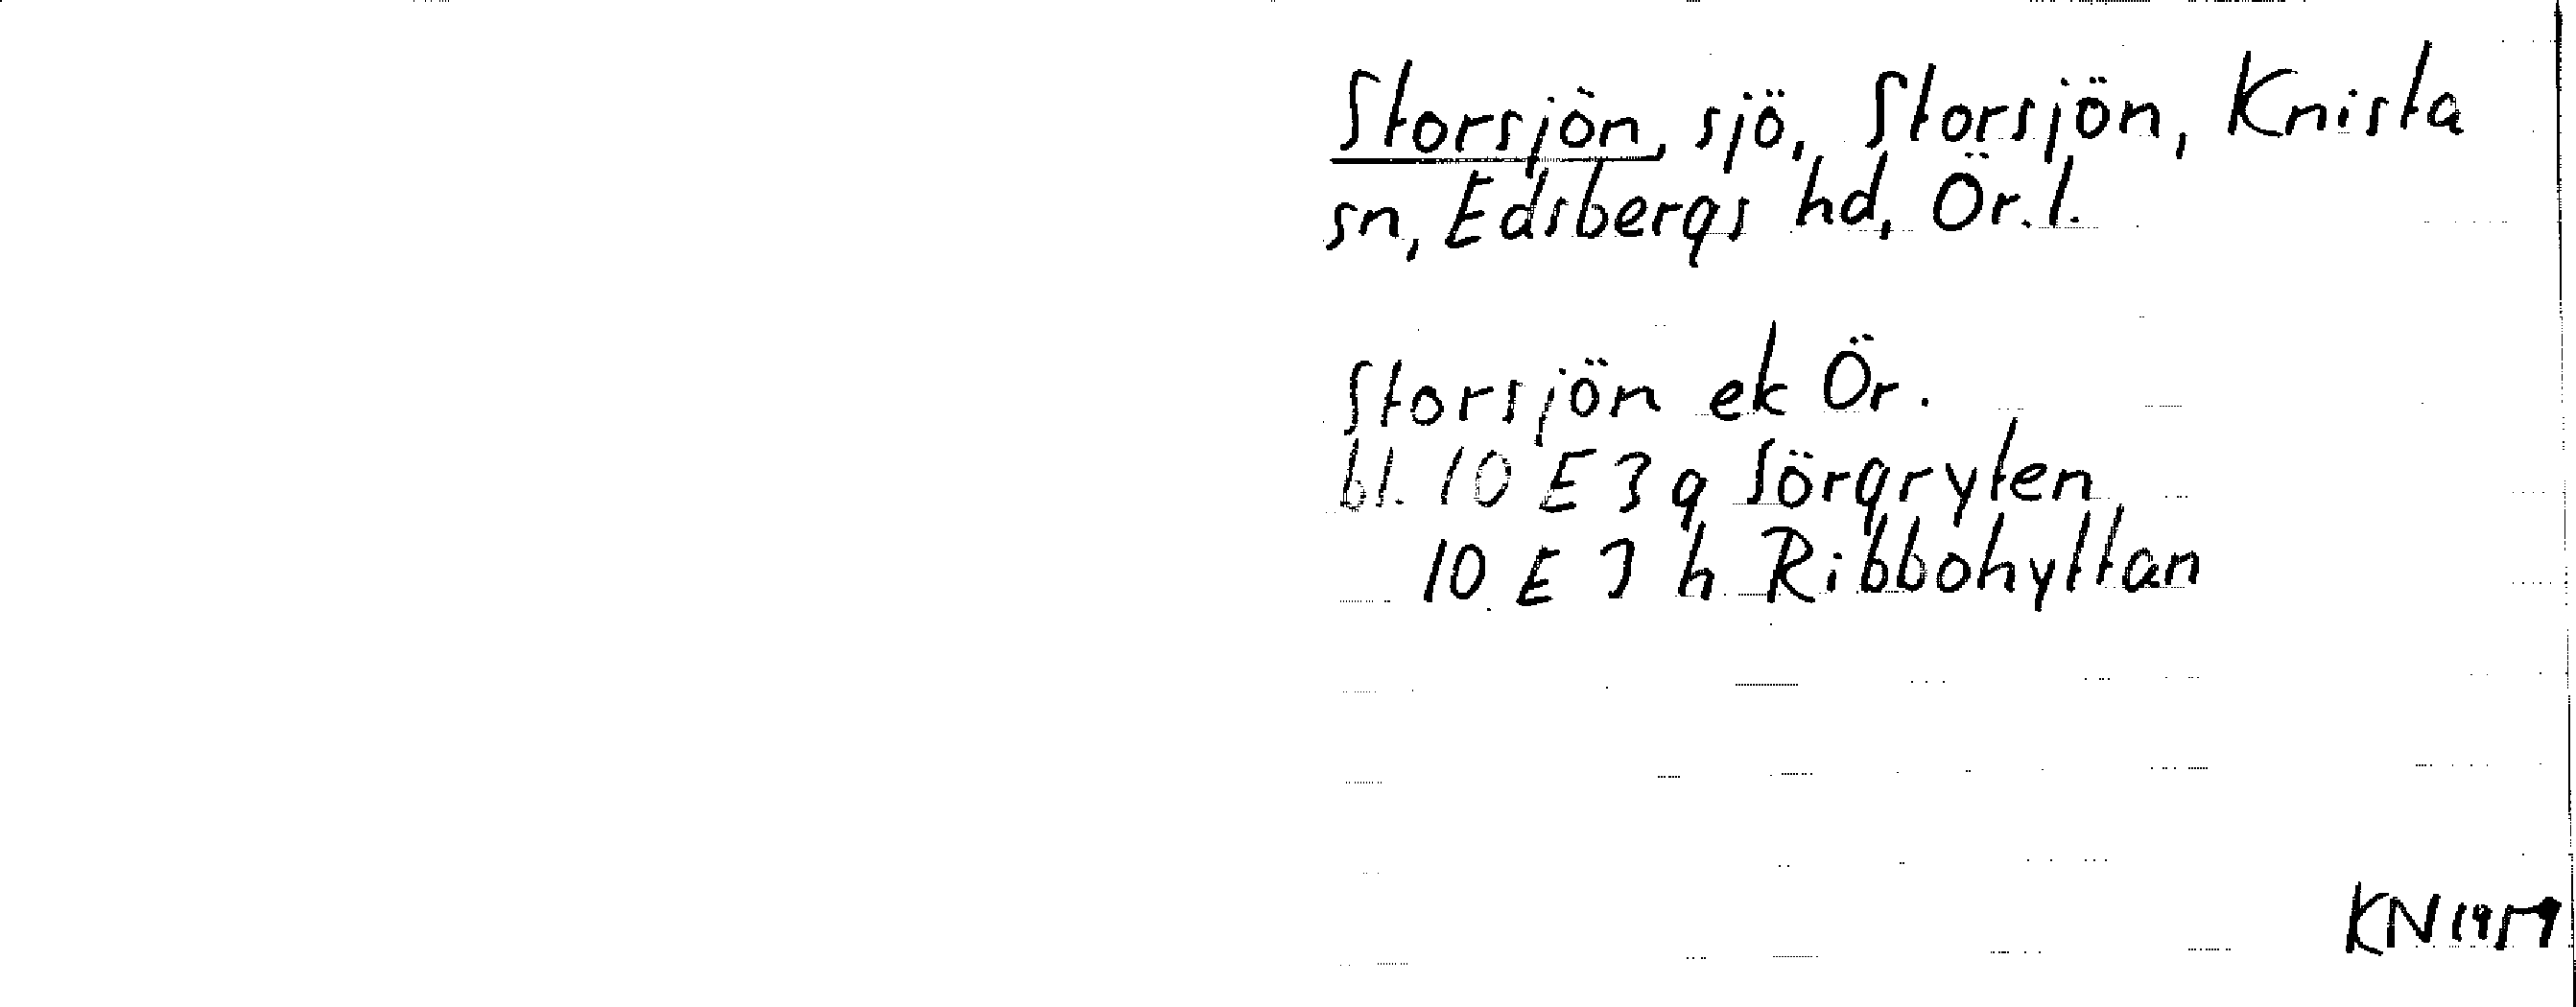 Storsjön, sjö, Storsjön, Knista
sn, Edsbergs hd, Ör.l.
Storsjön ek Ör.
bl. 10 E 3 g Sörgryten
10 E 3 h Ribbohyttan
KN 1959